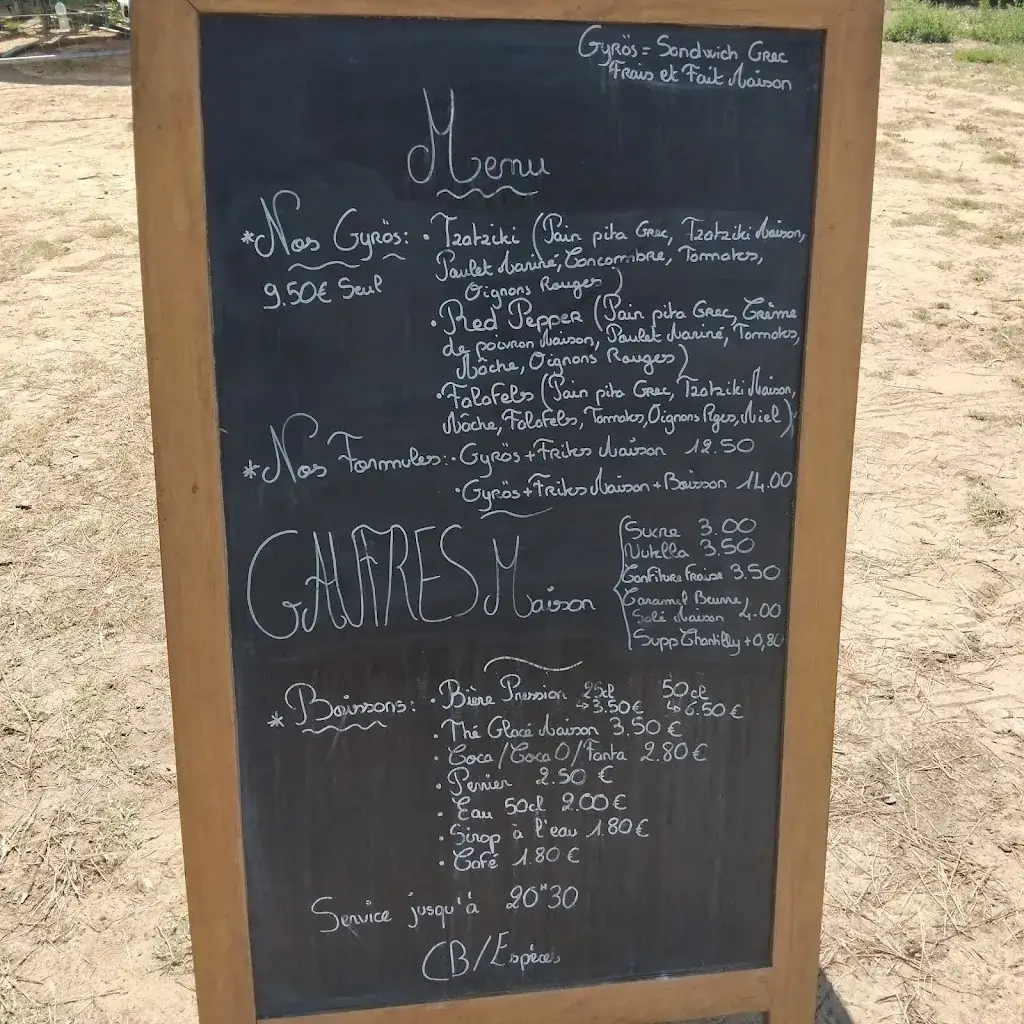 Gyrös = Sandwich Grec
Frais et Fait Maison
Menu
*Nos Gyrös: • Tzatziki (Pain pita Grec, Tzatziki Maison,
9.50€ Seul
Poulet Mariné, Concombre, Tommates,
Oignons Rouges)
• Red Pepper (Pain pita Grec, Crème
de poivron Maison, Poulet Mariné, Tommates,
Mâche, Oignons Rouges)
• Falafels (Pain pita Grec, Tzatziki Maison,
Mâche, Falafels, Tommates, Oignons Rges, Miel)
*Nos Formules: • Gyrös + Frites Maison 12.50
• Gyrös + Frites Maison + Boisson 14.00
GAUFRES Maison
Sucre 3.00
Nutella 3.50
Confiture Fraise 3.50
Caramel Beurre,
Salé Maison 4.00
Supp Chantilly + 0,80
* Boissons: • Bière Pression 25cl 50cl
↳3.50€ ↳6.50€
• Thé Glacé Maison 3.50 €
• Coca / Coca 0 / Fanta 2.80€
• Perrier 2.50 €
• Eau 50cl 2.00€
• Sirop à l'eau 1.80€
• Café 1.80 €
Service jusqu'à 20"30
CB/Espèces